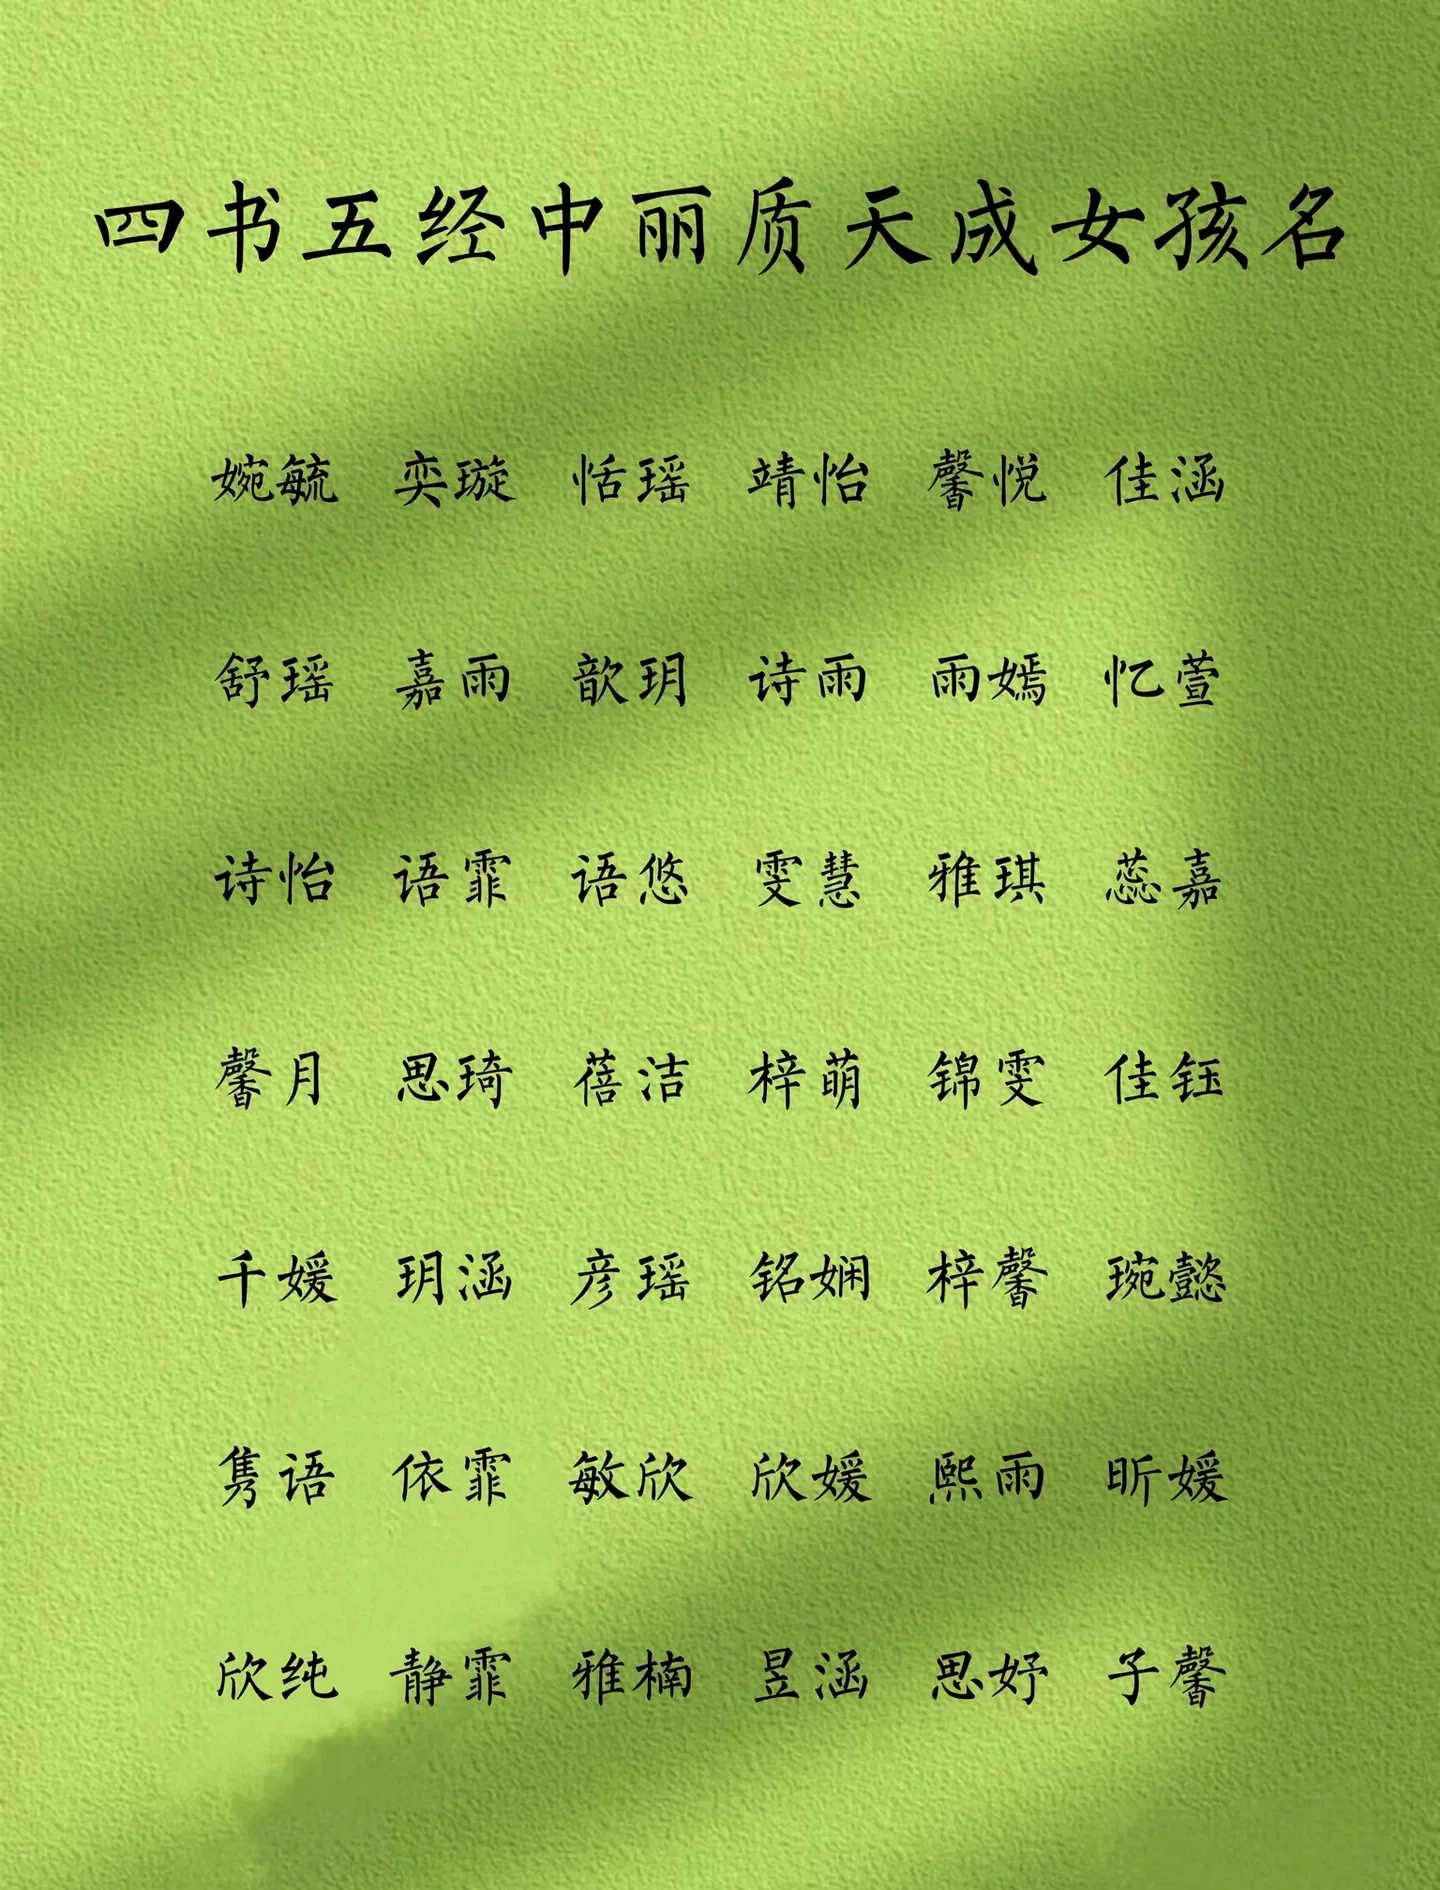 四书五经中丽质天成女孩名
婉毓 奕璇 恬瑶 靖怡 馨悦 佳涵
舒瑶 嘉雨 歆玥 诗雨 雨嫣 忆萱
诗怡 语霏 语悠 雯慧 雅琪 蕊嘉
馨月 思琦 蓓洁 梓萌 锦雯 佳钰
千媛 玥涵 彦瑶 铭娴 梓馨 琬懿
隽语 依霏 敏欣 欣媛 熙雨 昕媛
欣纯 静霏 雅楠 昱涵 思妤 子馨